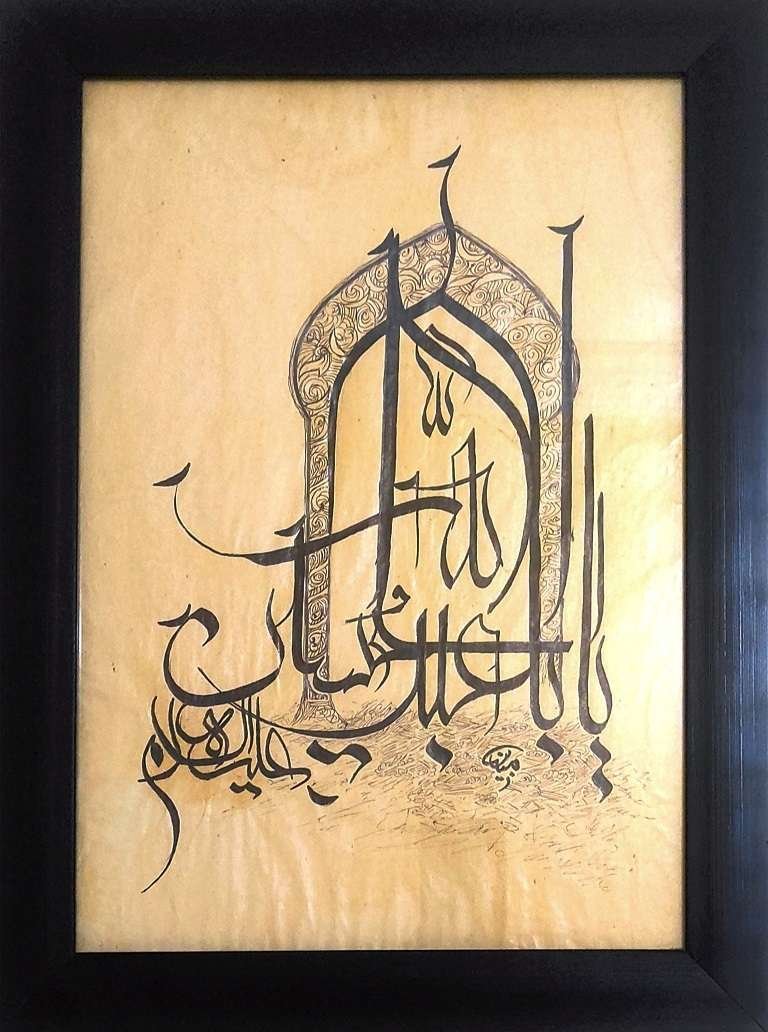 یا ابا عبد الله الحسین
علیه السلام